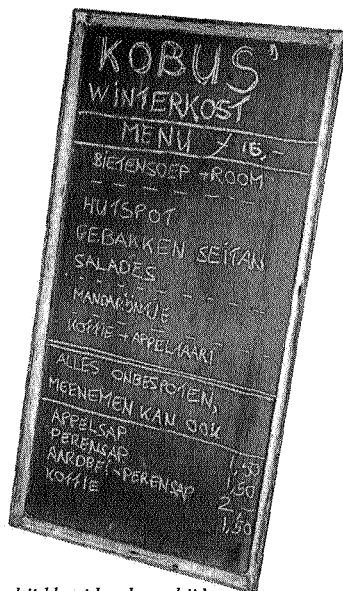 KOBUS'
WINTERKOST
MENU ƒ 15,-
BIETENSOEP + ROOM
HUTSPOT
GEBAKKEN SEITAN
SALADES
MANDARIJNTJE
KOFFIE + APPELTAART
ALLES ONBESPOTEN,
MEENEMEN KAN OOK
APPELSAP 1,50
PERENSAP 1,50
AARDBEI-PERENSAP 2,-
KOFFIE 1,50